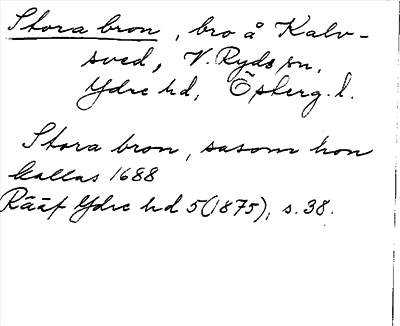 Stora bron, bro å Kalv-
sved, V. Ryds sn,
Ydre hd, Östergl.
Stora bron, såsom hon
kallas 1688
Rääf Ydre hd 5 (1875), s. 38.